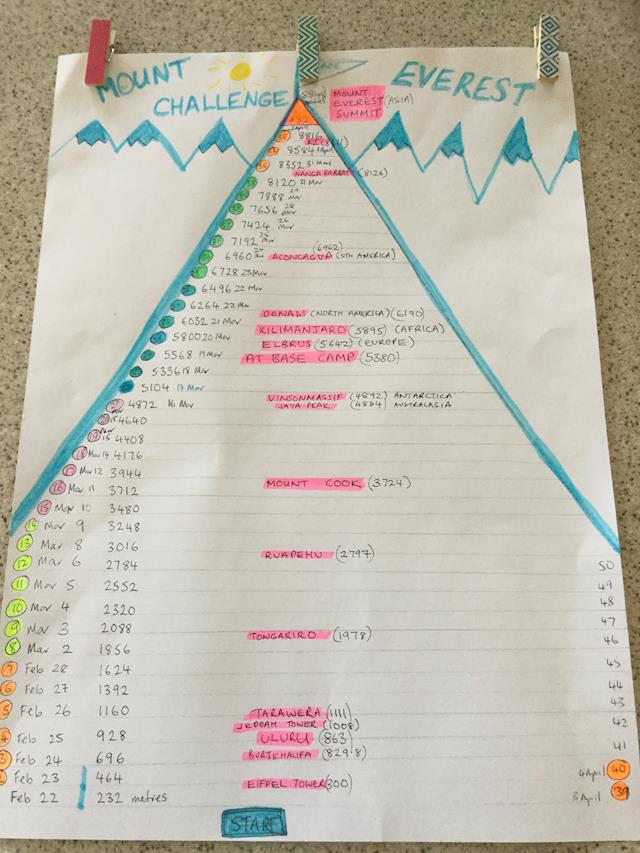 MOUNT EVEREST
CHALLENGE
MOUNT
EVEREST (ASIA)
SUMMIT
8816
K2 (8611)
8584 1 April
8352 31 Mar
NANGA PARBAT (8126)
8120 31 Mar
7888 29 Mar
7656 28 Mar
7424 26 Mar
7192 Mar
6960 Mar ACONCAGUA (6962) (STH AMERICA)
6728 23 Mar
6496 22 Mar
6264 22 Mar
DENALI (NORTH AMERICA) (6190)
6032 21 Mar
KILIMANJARO (5895) (AFRICA)
5800 20 Mar
ELBRUS (5642) (EUROPE)
5568 19 Mar AT BASE CAMP (5380)
5336 18 Mar
5104 17 Mar
VINSONMASSIF (4892) ANTARCTICA
4872 16 Mar JAYA PEAK (4884) AUSTRALASIA
4640
4408
18 Mar 14 4176
17 Mar 12 3944
16 Mar 11 3712 MOUNT COOK (3724)
15 Mar 10 3480
14 Mar 9 3248
13 Mar 8 3016
12 Mar 6 2784 RUAPEHU (2797) 50
11 Mar 5 2552 49
10 Mar 4 2320 48
9 Mar 3 2088 TONGARIRO (1978) 47
8 Mar 2 1856 46
7 Feb 28 1624 45
6 Feb 27 1392 44
5 Feb 26 1160 TARAWERA (1111) 43
JEDDAH TOWER (1008) 42
4 Feb 25 928 ULURU (863)
3 Feb 24 696 BURJKHALIFA (829.8) 41
2 Feb 23 464 EIFFEL TOWER (300) 4 April 40
Feb 22 232 metres 3 April 39
START